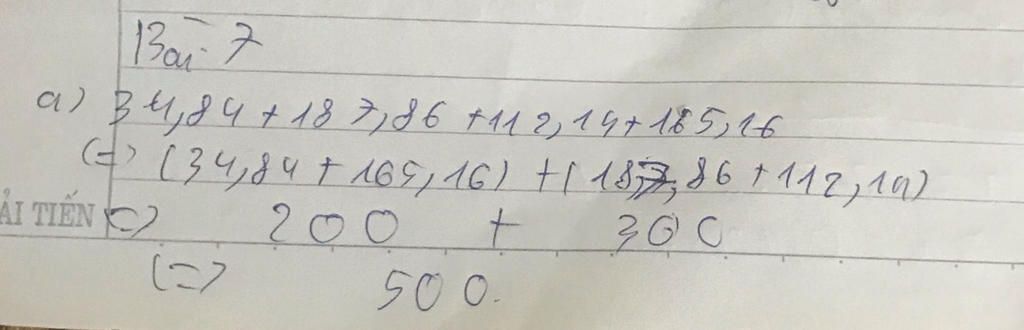 Bài 7
a) 34,84 + 187,86 + 112,14 + 165,16
(=) (34,84 + 165,16) + (187,86 + 112,14)
ẢI TIẾN (=) 200 + 300
(=) 500.